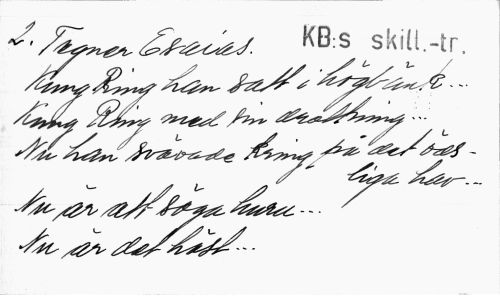 2. Tegner Esaias.
KB:s skill.-tr.
Kung Ring han satt i högbänk...
Kung Ring med sin drottning...
Nu han svävade kring på det ödsliga hav...
Nu är att söga huru...
Nu är det höst...